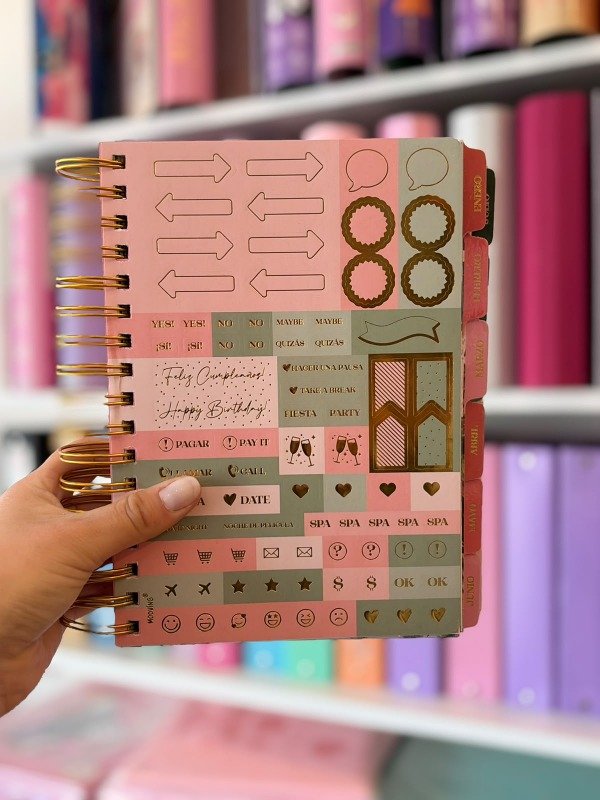 YES! YES! NO NO MAYBE MAYBE
¡SÍ! ¡SÍ! NO NO QUIZÁS QUIZÁS
Feliz Cumpleaños!
Happy Birthday!
HACER UNA PAUSA
TAKE A BREAK
FIESTA PARTY
PAGAR PAY IT
LLAMAR CALL
DATE
NIGHT NOCHE DE PELÍCULA SPA SPA SPA SPA SPA
? ? ! !
$ $ OK OK
MOOVING®
ENERO
FEBRERO
MARZO
ABRIL
MAYO
JUNIO